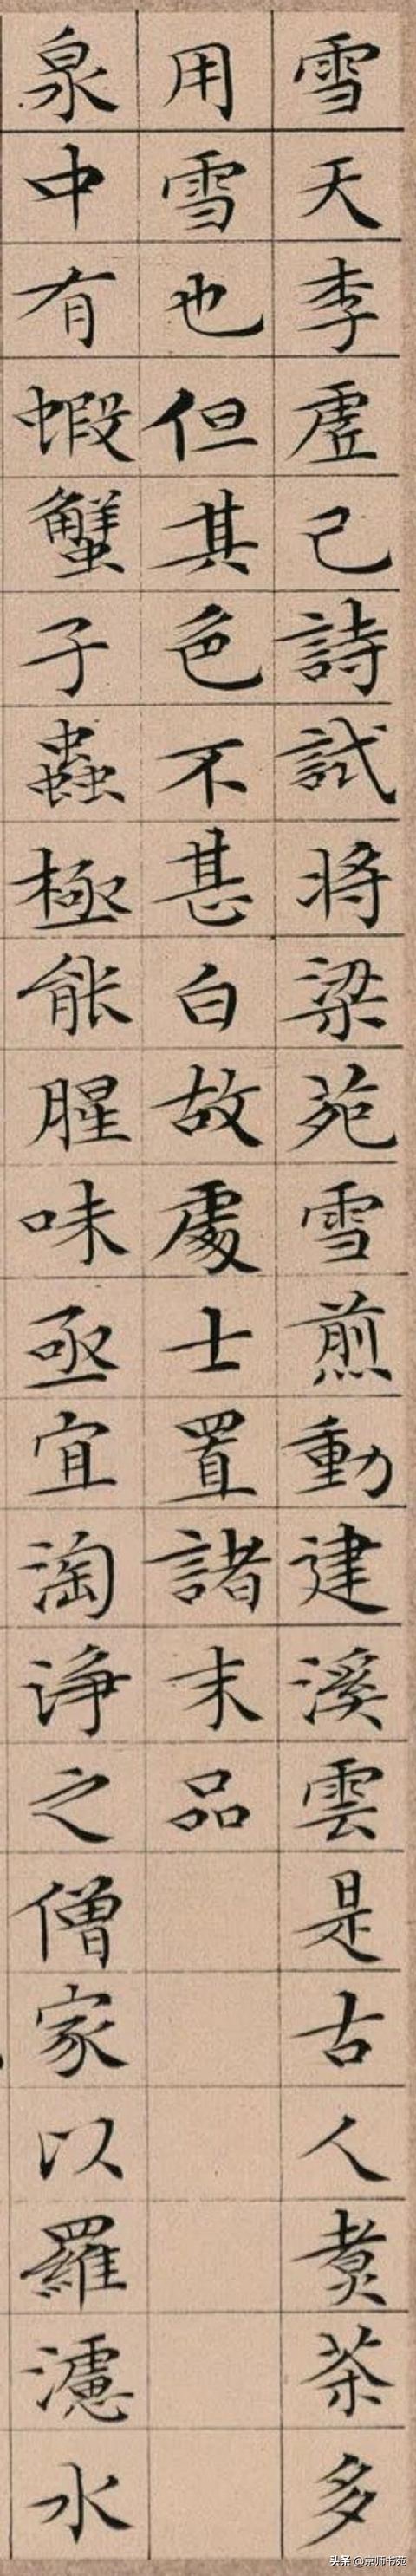 雪天李虗己詩試將梁苑雪煎動建溪雲是古人煑茶多
用雪也但其色不甚白故處士置諸末品
泉中有蝦蟹子蟲極能腥味亟宜淘浄之僧家以羅濾水
头条 @京师书苑